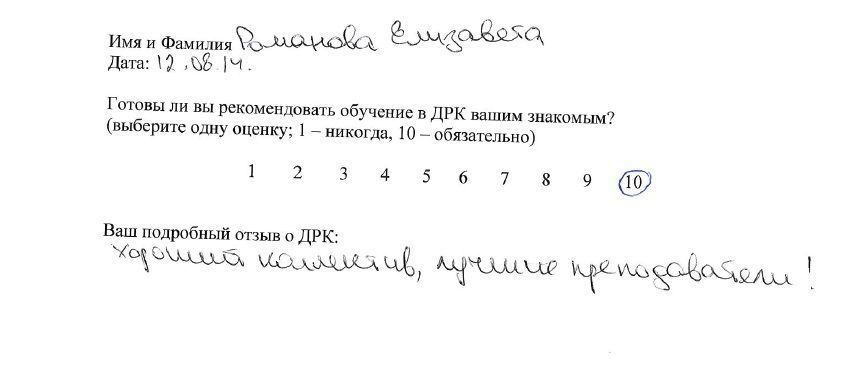 Имя и Фамилия Романова Елизавета
Дата: 12.08.14.
Готовы ли вы рекомендовать обучение в ДРК вашим знакомым?
(выберите одну оценку; 1 – никогда, 10 – обязательно)
1 2 3 4 5 6 7 8 9 10
Ваш подробный отзыв о ДРК:
хороший коллектив, лучшие преподаватели!